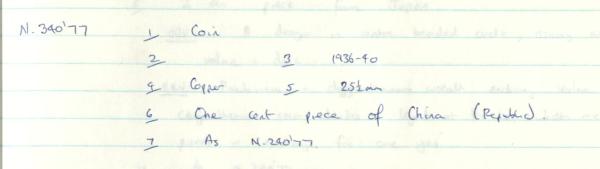 N.340'77 1 Coin
2 3 1936-40
4 Copper 5 25½mm
6 One cent piece of China (Republic).
7 As N.240'77.